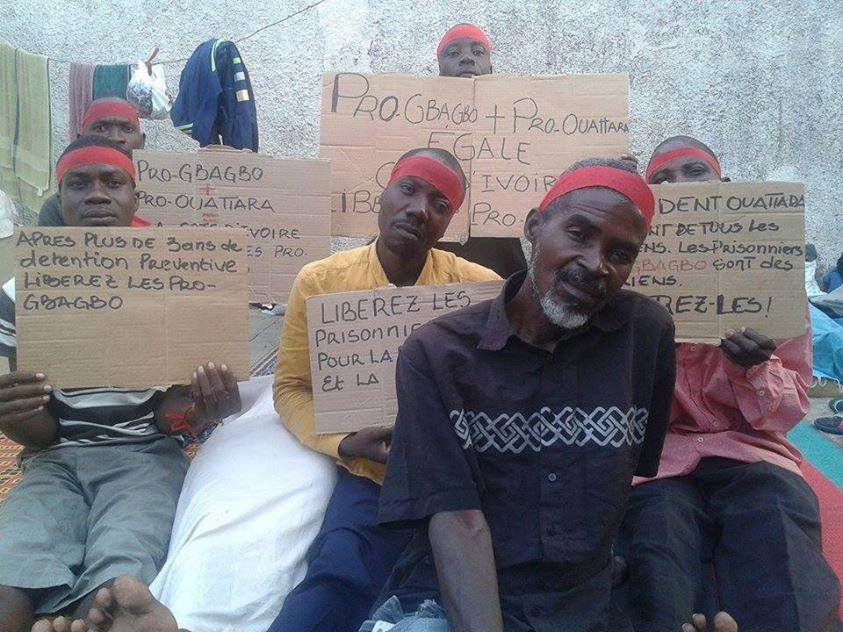 PRO-GBAGBO + PRO-OUATTARA
ÉGALE
IVOIRE
PRO-GBAGBO
+
PRO-OUATTARA
D'IVOIRE
PRO-
APRES PLUS DE 3ans de
détention Préventive
LIBEREZ LES PRO-
GBAGBO
LIBEREZ LES
PRISONNIE
POUR LA
ET LA
DENT OUATTARA
NT DE TOUS LES
IENS. LES PRISONNIERS
GBAGBO SONT DES
IENS.
REZ-LES!